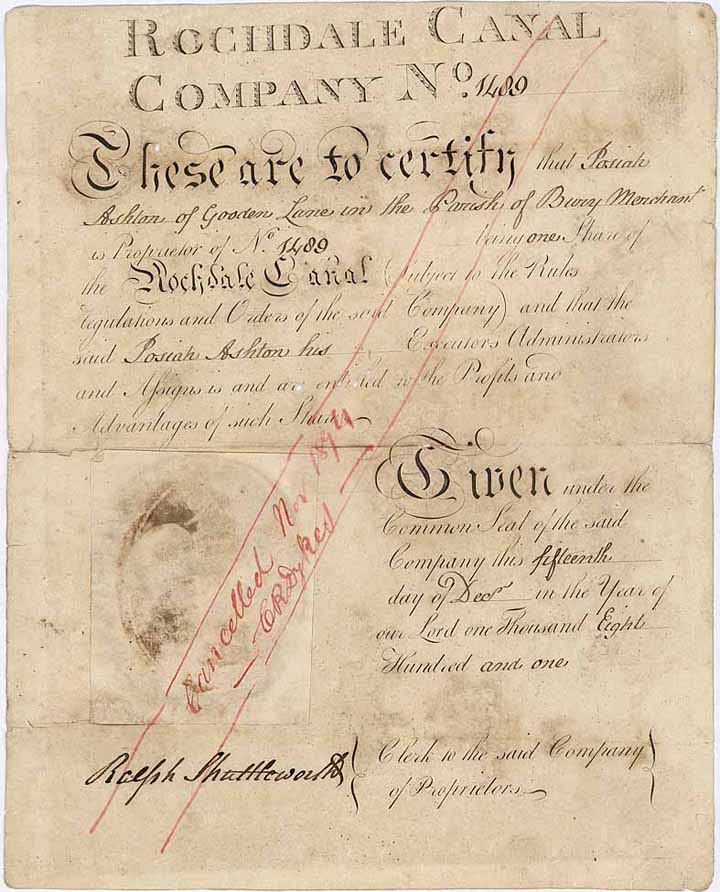 ROCHDALE CANAL
COMPANY No. 1489
These are to certify that Josiah
Ashton of Gooden Lane in the Parish of Bury Merchant
is Proprietor of No. 1489 being one Share of
the Rochdale Canal (Subject to the Rules
regulations and Orders of the said Company) and that the
said Josiah Ashton his Executors Administrators
and Assigns is and are entitled to the Profits and
Advantages of such Share
Given under the
Common Seal of the said
Company this fifteenth
day of Decr in the Year of
our Lord one Thousand Eight
Hundred and one
Cancelled Nov 1871
CR Dykes
Ralph Shuttleworth { Clerk to the said Company }
of Proprietors